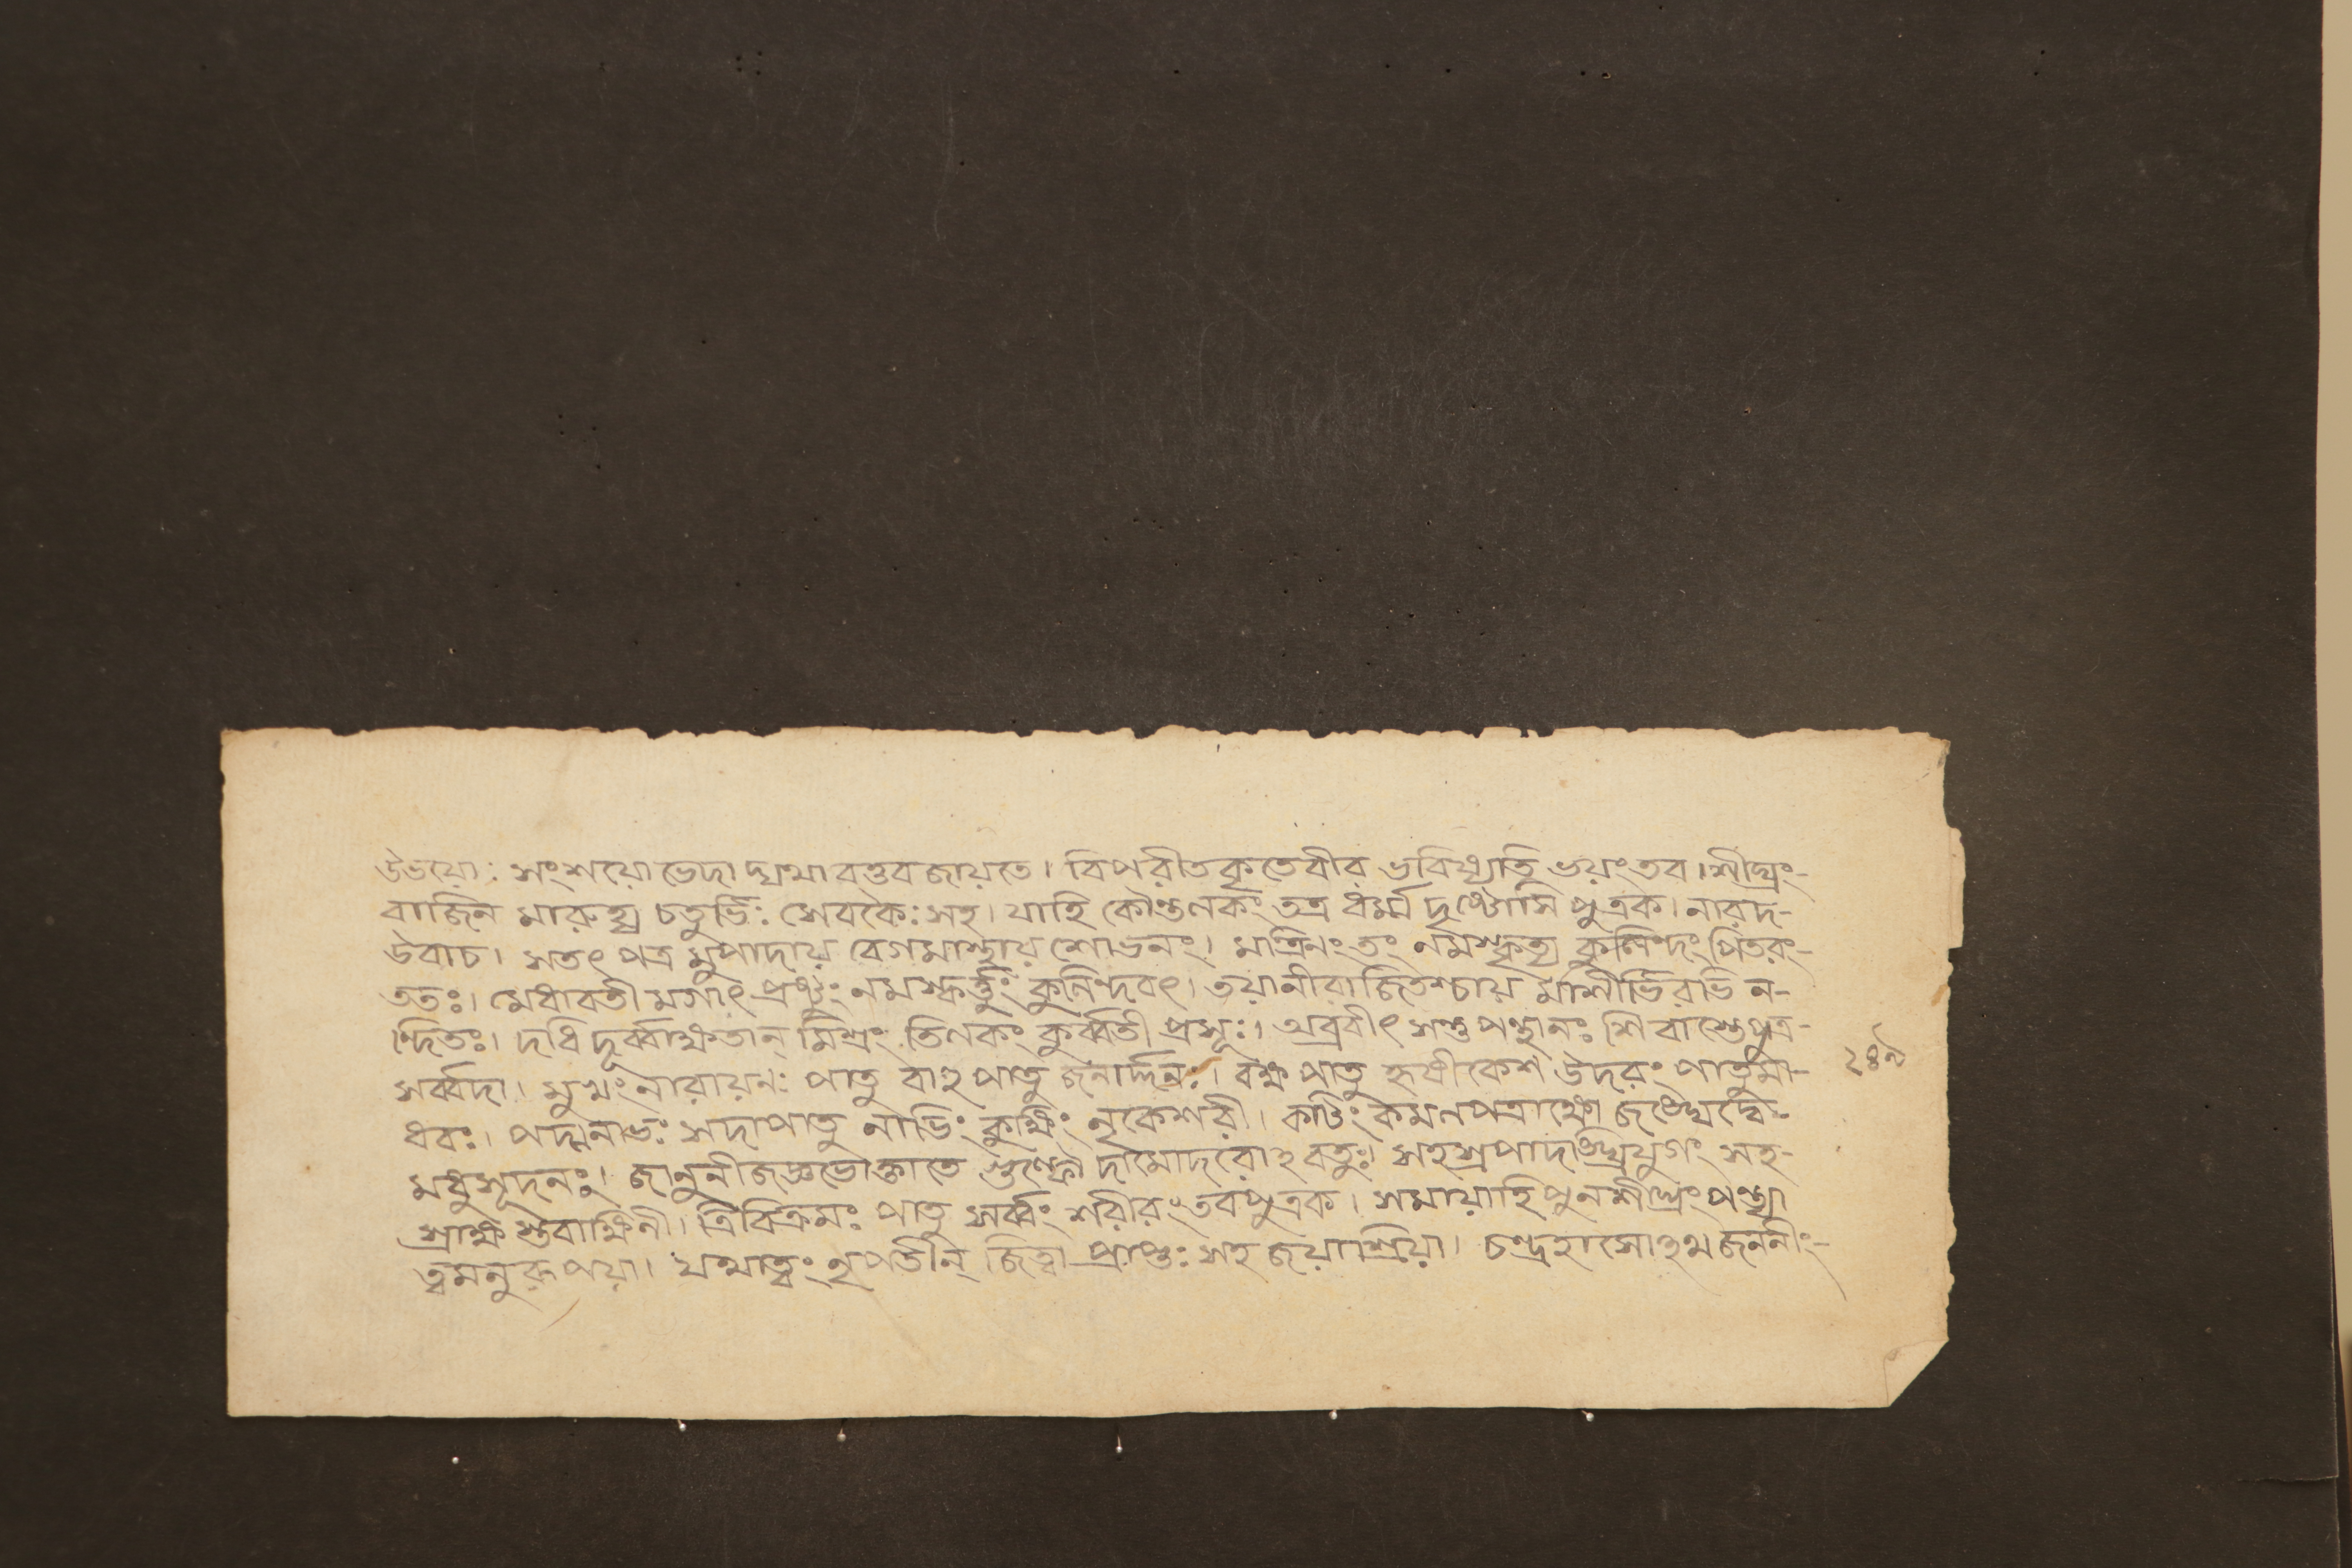 উভয়োঃ সংশয়ো ভেদা দ্যথাবত্তব জায়তে। বিপরীতকৃতেবীর ভবিষ্যতি ভয়ংতব। শীঘ্রং-
বাজিন মারুহ্য চতুর্ভিঃ সেবকৈঃ সহ। যাহি কৌন্তলকং তত্র ধর্ম্ম দৃষ্টোসি পুত্রক। নারদ-
উবাচ। সতৎ পত্র মুপাদায় বেগমাস্থায় শোভনং। মন্ত্রিনং তং নমস্কৃত্য কুলিন্দং পিতরং-
ততঃ। মেধাবতী মগাৎ প্রষ্টুং নমস্কর্ত্তুং কুলিন্দবৎ। তয়ানীরাজিতশ্চায় মাশীর্ভিরভি ন-
ন্দিতঃ। দধি দূর্ব্বাক্ষতান্ মিশ্রং তিলকং কুর্ব্বতী প্রসূঃ। অব্রবীৎ সন্তু পন্থানঃ শিবাস্তেপুত্র-
সর্ব্বদা। মুখং নারায়নঃ পাতু বাহু পাতু জনার্দ্দনঃ। বক্ষ পাতু হৃষীকেশ উদরং পাতুমা-
২৪৯
ধবঃ। পদ্মনাভঃ সদাপাতু নাভিং কুক্ষিং নৃকেশরী। কটিং কমলপত্রাক্ষো জঙ্ঘেদ্বে-
মধুসূদনঃ। জানুনী জগ্রভোক্তাতে গুল্ফৌ দামোদরোহবতুঃ। সহস্রপাদাঙ্ঘ্রিযুগং সহ-
স্রাক্ষ স্তবাক্ষিনী। ত্রিবিক্রমঃ পাতু সর্ব্বং শরীরং তবপুত্রক। সমায়াহি পুনশীঘ্রং পন্ত্যা
ত্বমনুরূপয়া। যথাত্বং নৃপতীন্ জিত্বা প্রাপ্তঃ সহ জয়াশ্রিয়া। চন্দ্রহাসোহথ জননীং-